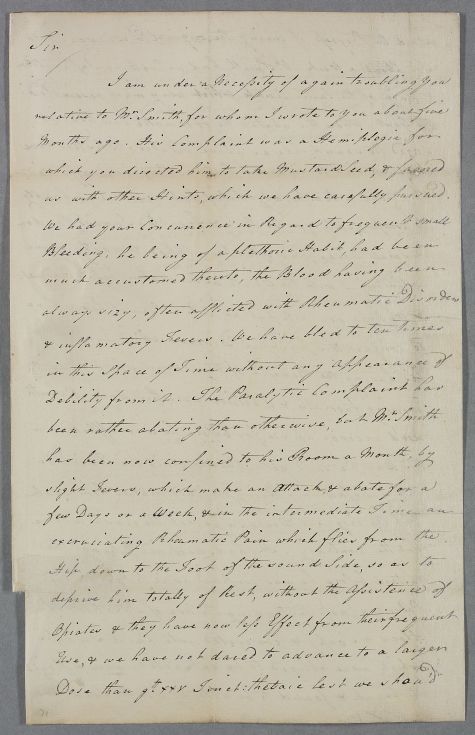 Sir
I am under a Necessity of again troubling You
relative to Mr. Smith, for whom I wrote to you about five
Months ago. His Complaint was a Hemiplegia for
which you directed him to take Mustard Seed, & favored
us with other Hints, which we have carefully pursued.
We had your Concurrence in Regard to frequent small
Bleeding; he being of a plethoric Habit, had been
much accustomed thereto, the Blood having been
always sizy, often afflicted with Rheumatic Disorders
& inflamatory Fevers. We have bled to ten times
in this Space of Time without any Appearance of
Debility from it. The Paralytic Complaint has
been rather abating than otherwise, but Mr. Smith
has been now confined to his Room a Month, by
slight Fevers, which make an Attack, & abate for a
few Days or a Week, & in the intermediate Time an
excruciating Rheumatic Pain which flies from the
Hip down to the Foot of the sound Side, so as to
deprive him totally of Rest, without the Assistence of
Opiates & they have now less Effect from their frequent
Use, & we have not dared to advance to a larger
Dose than gt. xxv Tinct: thebaic lest we shou'd